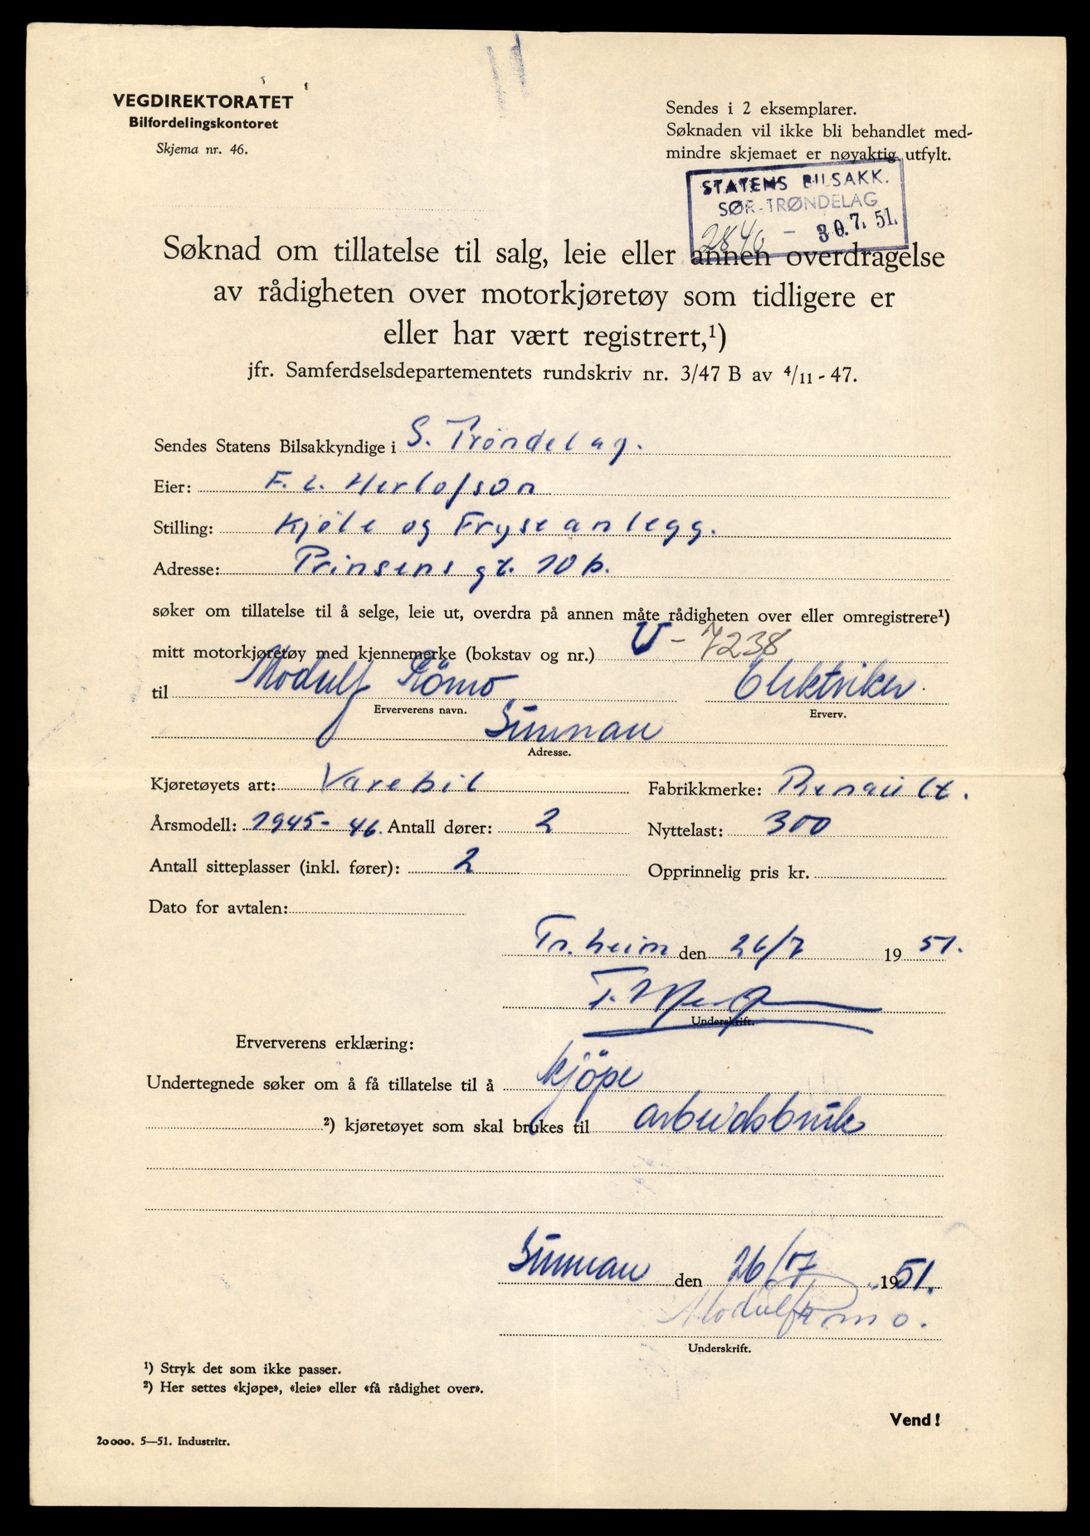 VEGDIREKTORATET
Bilfordelingskontoret
Skjema nr. 46.
Sendes i 2 eksemplarer.
Søknaden vil ikke bli behandlet med-
mindre skjemaet er nøyaktig utfylt.
STATENS BILSAKK.
SØR-TRØNDELAG
2840 - 30.7.51.
Søknad om tillatelse til salg, leie eller annen overdragelse
av rådigheten over motorkjøretøy som tidligere er
eller har vært registrert,¹)
jfr. Samferdselsdepartementets rundskriv nr. 3/47 B av 4/11-47.
Sendes Statens Bilsakkyndige i S. Trøndelag.
Eier: F. L. Herlofson
Stilling: Kjøle og Fryseanlegg.
Adresse: Prinsens gt. 10 b.
søker om tillatelse til å selge, leie ut, overdra på annen måte rådigheten over eller omregistrere¹)
mitt motorkjøretøy med kjennemerke (bokstav og nr.) U-7238
til Modulf Römo Elektriker.
Erververens navn. Erverv.
Sunnan
Adresse.
Kjøretøyets art: Varebil Fabrikkmerke: Renault.
Årsmodell: 1945-46. Antall dører: 2 Nyttelast: 300
Antall sitteplasser (inkl. fører): 2 Opprinnelig pris kr.
Dato for avtalen:
Tr.heim den 26/7 1951.
Underskrift.
Erververens erklæring:
Undertegnede søker om å få tillatelse til å kjöpe
²) kjøretøyet som skal brukes til arbeidsbruk
Sunnan den 26/7 1951.
Modulf Römo.
Underskrift.
¹) Stryk det som ikke passer.
²) Her settes «kjøpe», «leie» eller «få rådighet over».
Vend!
20000. 5—51. Industritr.